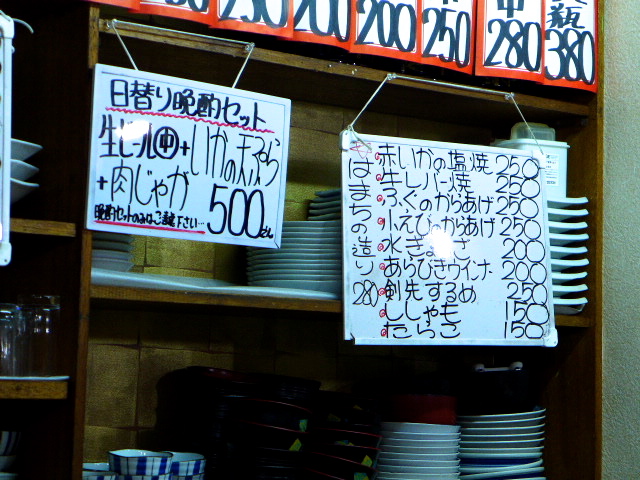 250
200
200
250
中
280
瓶
380
日替り晩酌セット
生ビール中+いかの天ぷら
+肉じゃが
500
晩酌セットのみはご遠慮下さい…
はまちの造り
280
赤いかの塩焼 250
牛レバー焼 250
ふぐのからあげ 250
小えびのからあげ 250
水ぎょーざ 200
あらびきウインナー 200
剣先するめ 250
ししゃも 150
たらこ 150